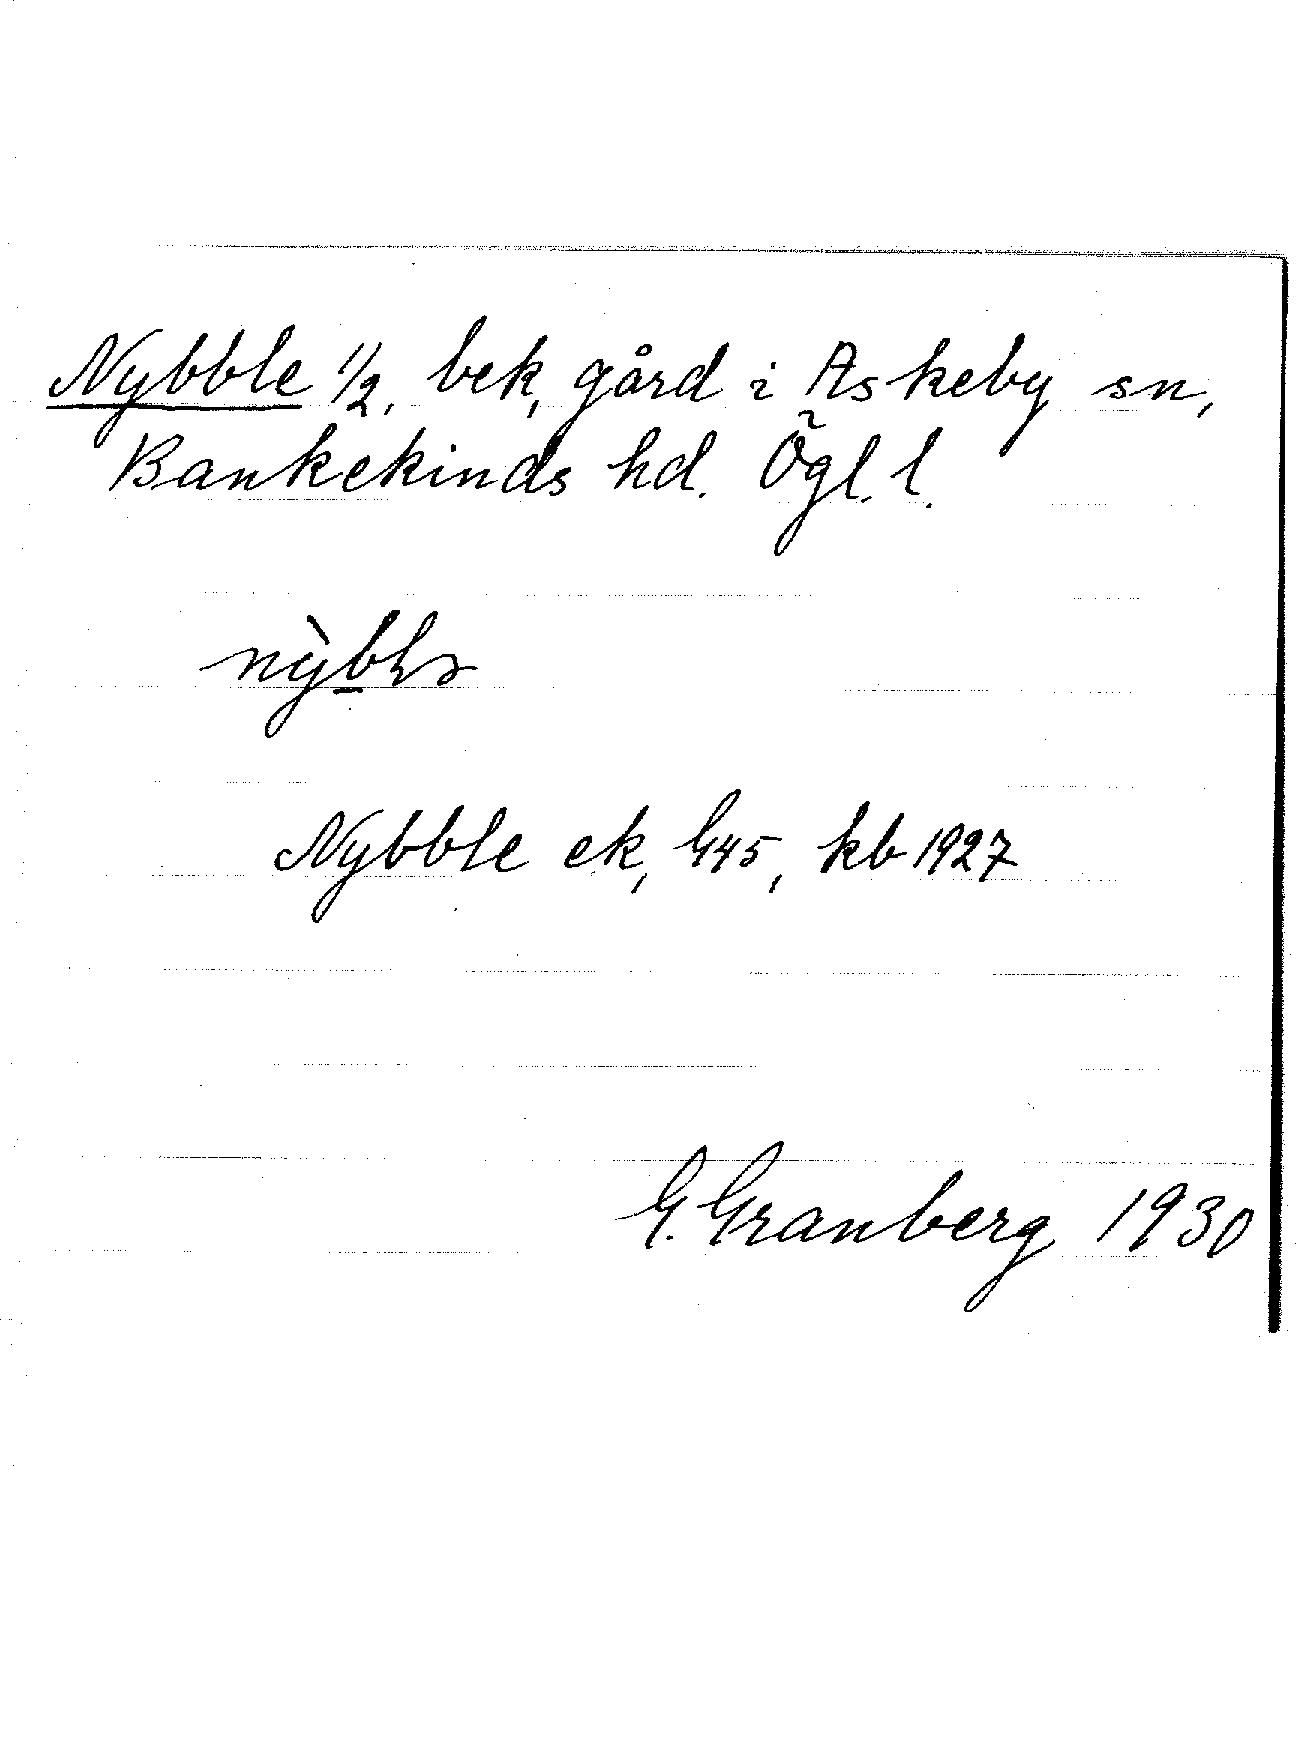 Nybble 1/2, bek, gård i Askeby sn,
Bankekinds hd. Ögl. l.
Nybble ek, G45, kb 1927
G. Granberg 1930